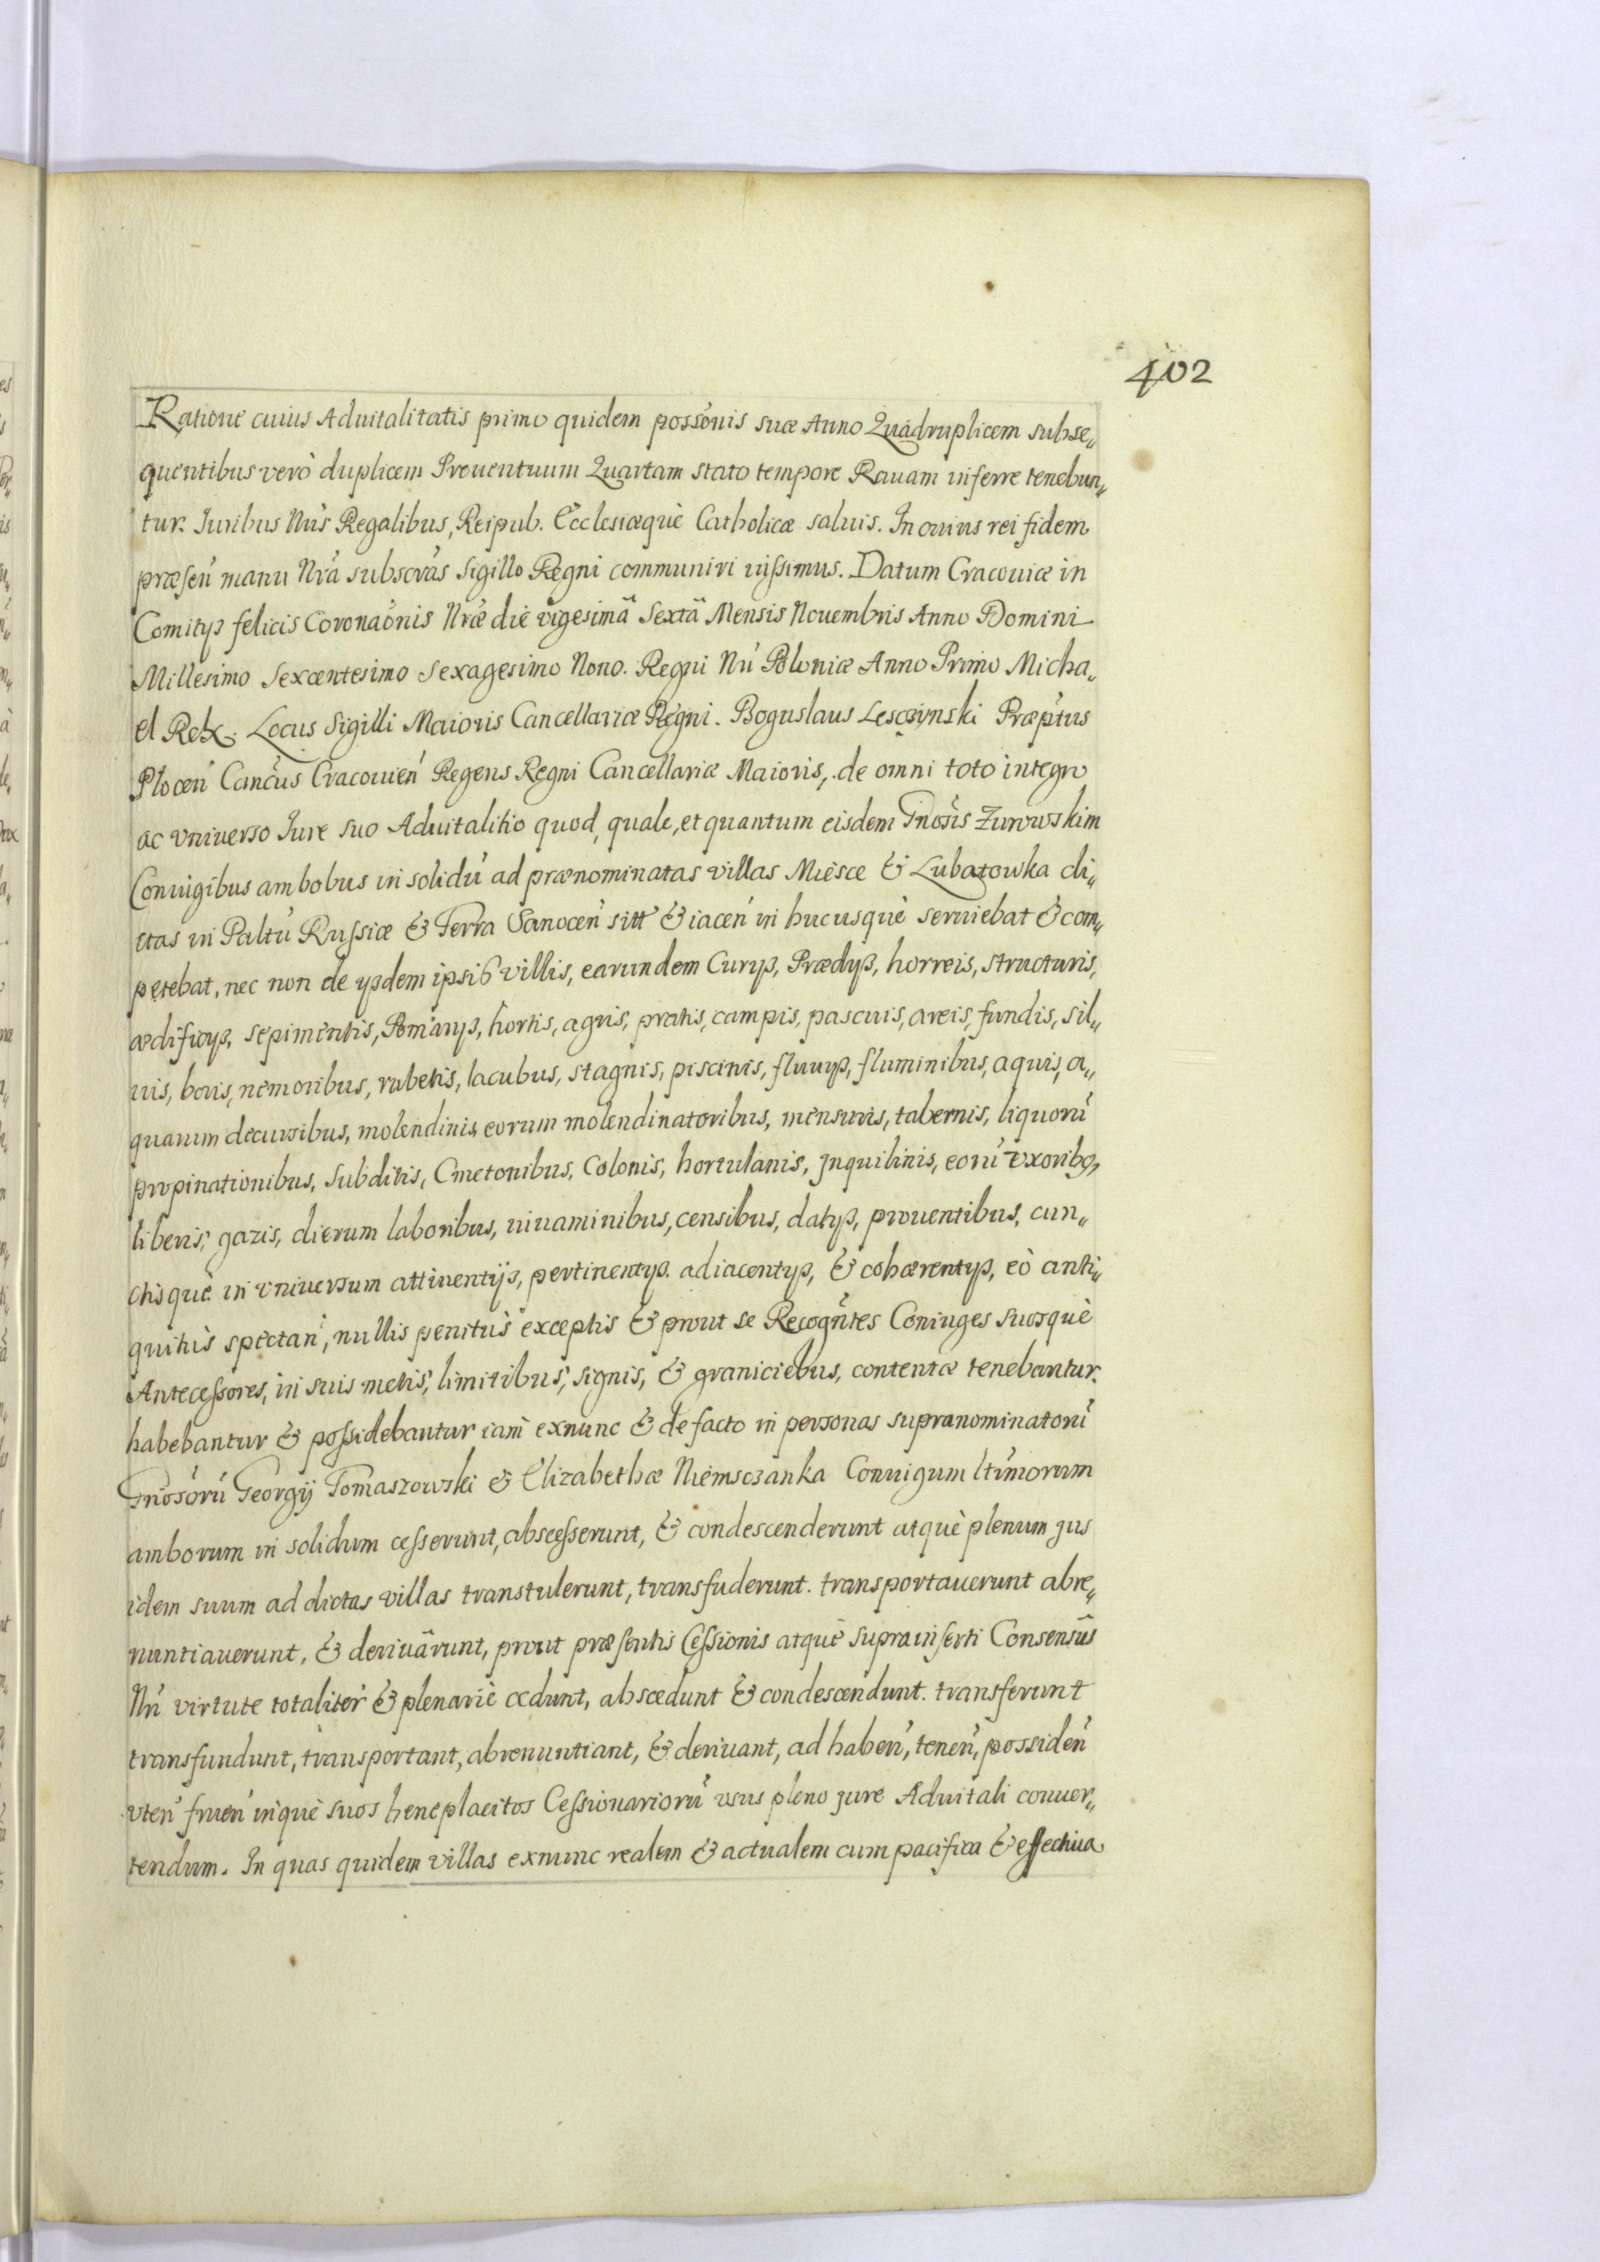 402
Ratione cuius Aduitalitatis primo quidem possönis suæ Anno Quadruplicem subse„
quentibus verò duplicem Prouentuum Quartam stato tempore Rauam inferre tenebun„
tur. Iuribus Nŕis Regalibus, Reipub. Ecclesiæquè Catholicæ saluis. In cuius rei fidem
præsen̄ manu Nŕa subscŕas Sigillo Regni communiri iussimus. Datum Cracouiæ in
Comitijs felicis Coronaónis Nŕæ die vigesimâ Sextâ Mensis Nouembris Anno Domini
Millesimo Sexcentesimo Sexagesimo Nono. Regni Nŕi Poloniæ Anno Primo Micha„
el Rex. Locus Sigilli Maioris Cancellariæ Regni. Boguslaus Lesczynski Præptus
Plocen̄ Cancŭs Cracouien̄ Regens Regni Cancellariæ Maioris, de omni toto integro
ac vniuerso Iure suo Aduitalitio quod, quale, et quantum eisdem Gnosis Żurowskim
Coniugibus ambobus in solidū ad prænominatas villas Miesce & Lubatowka di„
ctas in Paltū Russiæ & Terra Sanocen̄ sitt & iacen̄ in hucusquè seruiebat & com„
petebat, nec non de ijsdem ipsis villis, earundem Curijs, Prædijs, horreis, structuris,
ædificijs, sepimentis, Pomarijs, hortis, agris, pratis, campis, pascuis, areis, fundis, sil„
uis, boris, nemoribus, rubetis, lacubus, stagnis, piscinis, fluuijs, fluminibus, aquis, a„
quarum decursibus, molendinis eorum molendinatoribus, mensuris, tabernis, liquorū
propinationibus, subditis, Cmetonibus, Colonis, hortulanis, Inquilinis, eorū vxoribq,
liberis, gazis, dierum laboribus, iuuaminibus, censibus, datijs, prouentibus, cun„
ctisquè in vniuersum attinentijs, pertinentijs. adiacentijs, & cohærentijs, eò anti„
quitùs spectan̄, nullis penitùs exceptis & prout se Recogñtes Coniuges suosquè
Antecessores, in suis metis, limitibus, signis, & graniciebus, contentæ tenebantur.
habebantur & possidebantur iam exnunc & de facto in personas supranominatorū
Gnosorū Georgij Tomaszowski & Elizabethæ Niemsczanka Coniugum ltimorum
amborum in solidum cesserunt, abscesserunt, & condescenderunt atquè plenum jus
idem suum ad dictas villas transtulerunt, transfuderunt. transportauerunt abre„
nuntiauerunt, & deriuârunt, prout præsentis Cessionis atquè suprainserti Consensûs
Nŕi virtute totaliter & plenariè cedunt, abscedunt & condescendunt. transferunt
transfundunt, transportant, abrenuntiant, & deriuant, ad haben̄, tenen̄, possiden̄
vten̄ fruen̄ inquè suos beneplacitos Cessionariorū vsus pleno jure Aduitali conuer„
tendum. In quas quidem villas exnunc realem & actualem cum pacifica & effectiua